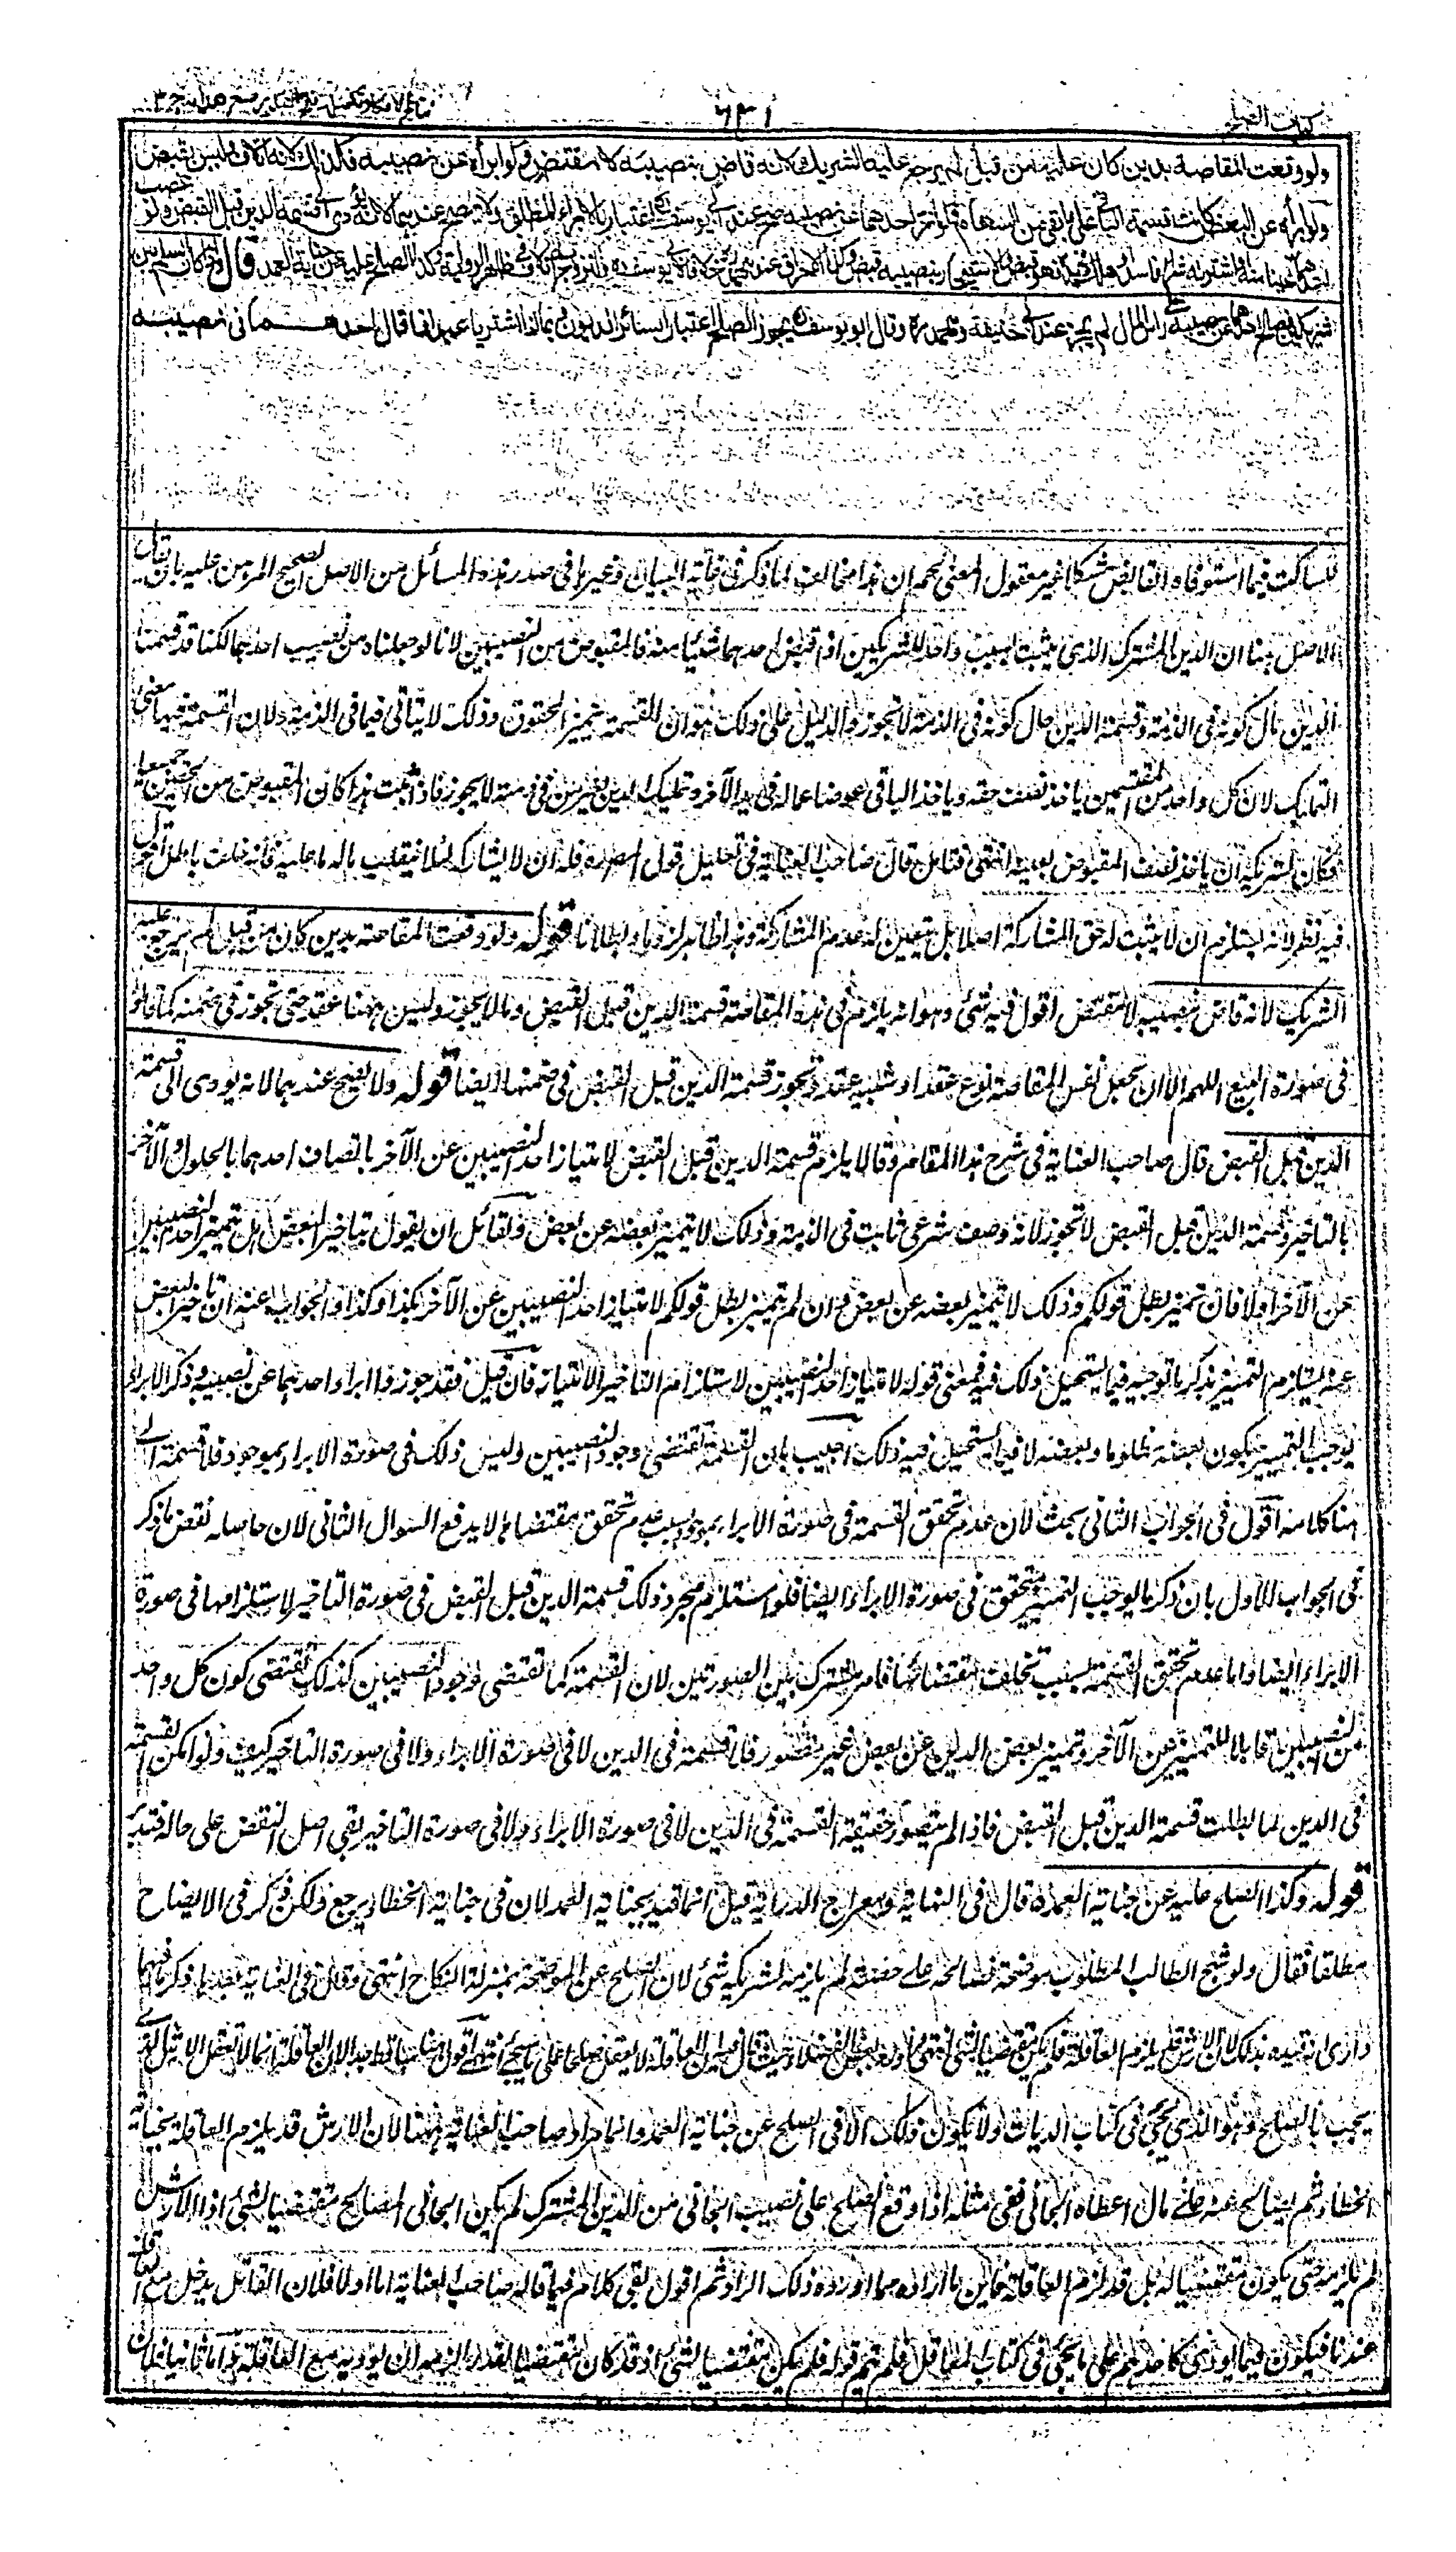 كتاب الصلح
٦٣١
نتائج الافكار تكملة فتح القدير مع هدايه ج ٣
ولو وقعت المقاصة بدين كان عليه من قبل لم يرجع عليه الشريك لانه قاض بنصيبه لا مقتض ولو ابرأه عن نصيبه فكذلك لانه اتلاف وليس بقبض
ولو ابرأه عن البعض كانت قسمة الباقي على ما بقي من السهام ولو اخر احدهما عن نصيبه صح عند ابي يوسف اعتبارا بالابراء المطلق ولا يصح عندهما لانه يؤدي الى قسمة الدين قبل القبض ولو غصب
احدهما عينا منه او اشتراه شراء فاسدا وهلك في يده فهو قبض والاستيجار بنصيبه قبض وكذا الاحراق عند محمد خلافا لابي يوسف والتزوج به اتلاف في ظاهر الرواية وكذا الصلح عليه عن جناية العمد قال واذا كان السلم بين
شريكين فصالح احدهما من نصيبه على راس المال لم يجز عند ابي حنيفة ومحمد وقال ابو يوسف يجوز الصلح اعتبارا بسائر الديون وبما اذا اشتريا عبدا فاقال احدهما في نصيبه
للساكت فيما استوفاه القابض مشكلا غير معقول المعنى مع ان هذا مخالف لما ذكر في غاية البيان وغيرها في صدر هذه المسائل من الاصل الصحيح المبرهن عليه بان يقال
الاصل هنا ان الدين المشترك الذي يثبت بسبب واحد للشريكين اذا قبض احدهما شيئا منه فالمقبوض من النصيبين لانا لو جعلناه من نصيب احدهما لكنا قد قسمنا
الدين حال كونه في الذمة وقسمة الدين حال كونه في الذمة لا تجوز والدليل على ذلك هو ان القسمة تمييز الحقوق وذلك لا يتاتى فيما في الذمة ولان القسمة فيها معنى
التمليك لان كل واحد من المقتسمين ياخذ نصف حقه وياخذ الباقي عوضا عما له في يد الآخر وتمليك الدين لغير من في ذمته لا يجوز فاذا ثبت هذا كان المقبوض من الحقين جميعا
فكان لشريكه ان ياخذ نصف المقبوض بعينه انتهى فتامل قال صاحب العناية في تعليل قول المص فله ان لا يشاركه لئلا ينقلب ما له ما عليه فانه خلف باطل اقول
فيه نظر لانه يستلزم ان لا يثبت له حق المشاركة اصلا بل يتعين له عدم المشاركة وهذا ظاهر لزوما وبطلانا قوله ولو وقعت المقاصة بدين كان من قبل لم يرجع عليه
الشريك لانه قاض بنصيبه لا مقتض اقول فيه شئ وهو انه يلزم في هذه المقاصة قسمة الدين قبل القبض وما لا يجوز وليس ههنا عقد حتى تجوز في ضمنه كما قالوا
في صورة البيع اللهم الا ان تجعل نفس المقاصة نوع عقد او شبيه عقد فتجوز قسمة الدين قبل القبض في ضمنها ايضا قوله ولا يصح عندهما لانه يودي الى قسمة
الدين قبل القبض قال صاحب العناية في شرح هذا المقام وقالا يلزم قسمة الدين قبل القبض لامتياز احد النصيبين عن الآخر باتصاف احدهما بالحلول والآخر
بالتاخير وقسمة الدين قبل القبض لا تجوز لانه وصف شرعي ثابت في الذمة وذلك لا يتميز بعضه عن بعض ولقائل ان يقول بتاخير البعض هل يتميز احد النصيبين
عن الآخر او لا فان تميز بطل قولكم وذلك لا يتميز بعضه عن بعض وان لم يتميز بطل قولكم لامتياز احد النصيبين عن الآخر بكذا وكذا والجواب عنه ان تاخير البعض
عنه يستلزم التمييز بذكر ما توجبه فيما يستحيل ذلك فيه فمعنى قوله لامتياز احد النصيبين لاستلزام التاخير الامتياز فان قيل فقد جوزوا ابراء احدهما عن نصيبه وذكر الابراء
يوجب التمييز بكون بعضه مطلوبا وبعضه لا فيما يستحيل فيه ذلك اجيب بان القسمة تقتضي وجود النصيبين وليس ذلك في صورة الابراء بموجود فلا قسمة الى
هنا كلامه اقول في الجواب الثاني بحث لان عدم تحقق القسمة في صورة الابراء بسبب عدم تحقق مقتضاها لا يدفع السوال الثاني لان حاصله نقض ما ذكر
في الجواب الاول بان ذكر ما يوجب التمييز متحقق في صورة الابراء ايضا فلو استلزم مجرد ذلك قسمة الدين قبل القبض في صورة التاخير لاستلزامها في صورة
الابراء ايضا واما عدم تحقق القسمة بسبب تخلف مقتضاها فامر مشترك بين الصورتين لان القسمة كما تقتضي وجود النصيبين كذلك تقتضي كون كل واحد
من النصيبين قابلا للتمييز عن الآخر وتمييز بعض الدين عن بعض غير متصور فلا قسمة في الدين لا في صورة الابراء ولا في صورة التاخير كيف ولو امكن القسمة
في الدين لما بطلت قسمة الدين قبل القبض فاذا لم يتصور حقيقة القسمة في الدين لا في صورة الابراء ولا في صورة التاخير بقي اصل النقض على حاله فتدبر
قوله وكذا الصلح عليه عن جناية العمد قال في النهاية ومعراج الدراية قيل انما قيد بجناية العمد لان في جناية الخطاء يرجع ولكن ذكر في الايضاح
مطلقا فقال ولو شج الطالب المطلوب موضحة فصالحه على حصته لم يلزمه لشريكه شئ لان الصلح عن الموضحة بمنزلة النكاح انتهى وقال في العناية بعد ما ذكر ما فيهما
وارى انه قيده بذلك لان الارش قد يلزم العاقلة فلم يكن مقتضيا لشئ انتهى
يجب بالصلح وهو الذي يجئ في كتاب الديات ولا يكون ذلك الا في الصلح عن جناية العمد وانما مراد صاحب العناية ههنا لان الارش قد يلزم العاقلة بجناية
الخطاء ثم يصالح عنه على مال اعطاه الجاني ففي مثله اذا وقع الصلح على نصيب الجاني من الدين المشترك لم يكن الجاني المصالح مقتضيا لشئ اذ الارش
لم يلزمه حتى يكون مقتضيا له بل قد لزم العاقلة فاين ما اراده مما اورده ذلك الراد ثم اقول بقي كلام فيما قاله صاحب العناية اما اولا فلان القاتل يدخل مع العاقلة
عندنا فيكون فيما يودي كاحدهم على ما يجئ في كتاب المعاقل فلم يتم قوله فلم يكن مقتضيا لشئ اذ قد كان مقتضيا لقدر ما لزمه ان يوديه مع العاقلة واما ثانيا فلان